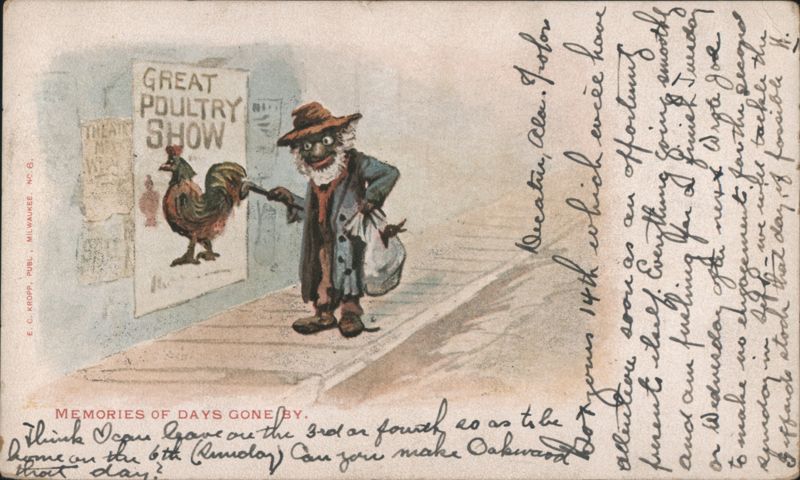 GREAT
POULTRY
SHOW
THEATR
E. C. KROPP, PUBL., MILWAUKEE. NO. 6.
MEMORIES OF DAYS GONE BY.
Decatur, Ala.
Got yours 14th which will have
attention soon as an opportunity
presents itself. Everything going smoothly
and am pushing. You I finish Tuesday
or Wednesday of the next. Wrote Joe
to make no engagement for the second
Sunday in Sept. we will tackle the
stock that day, if possible. H.
Think I can leave on the 3rd or fourth so as to be
home on the 6th (Sunday) Can you make Oakwood
that day?